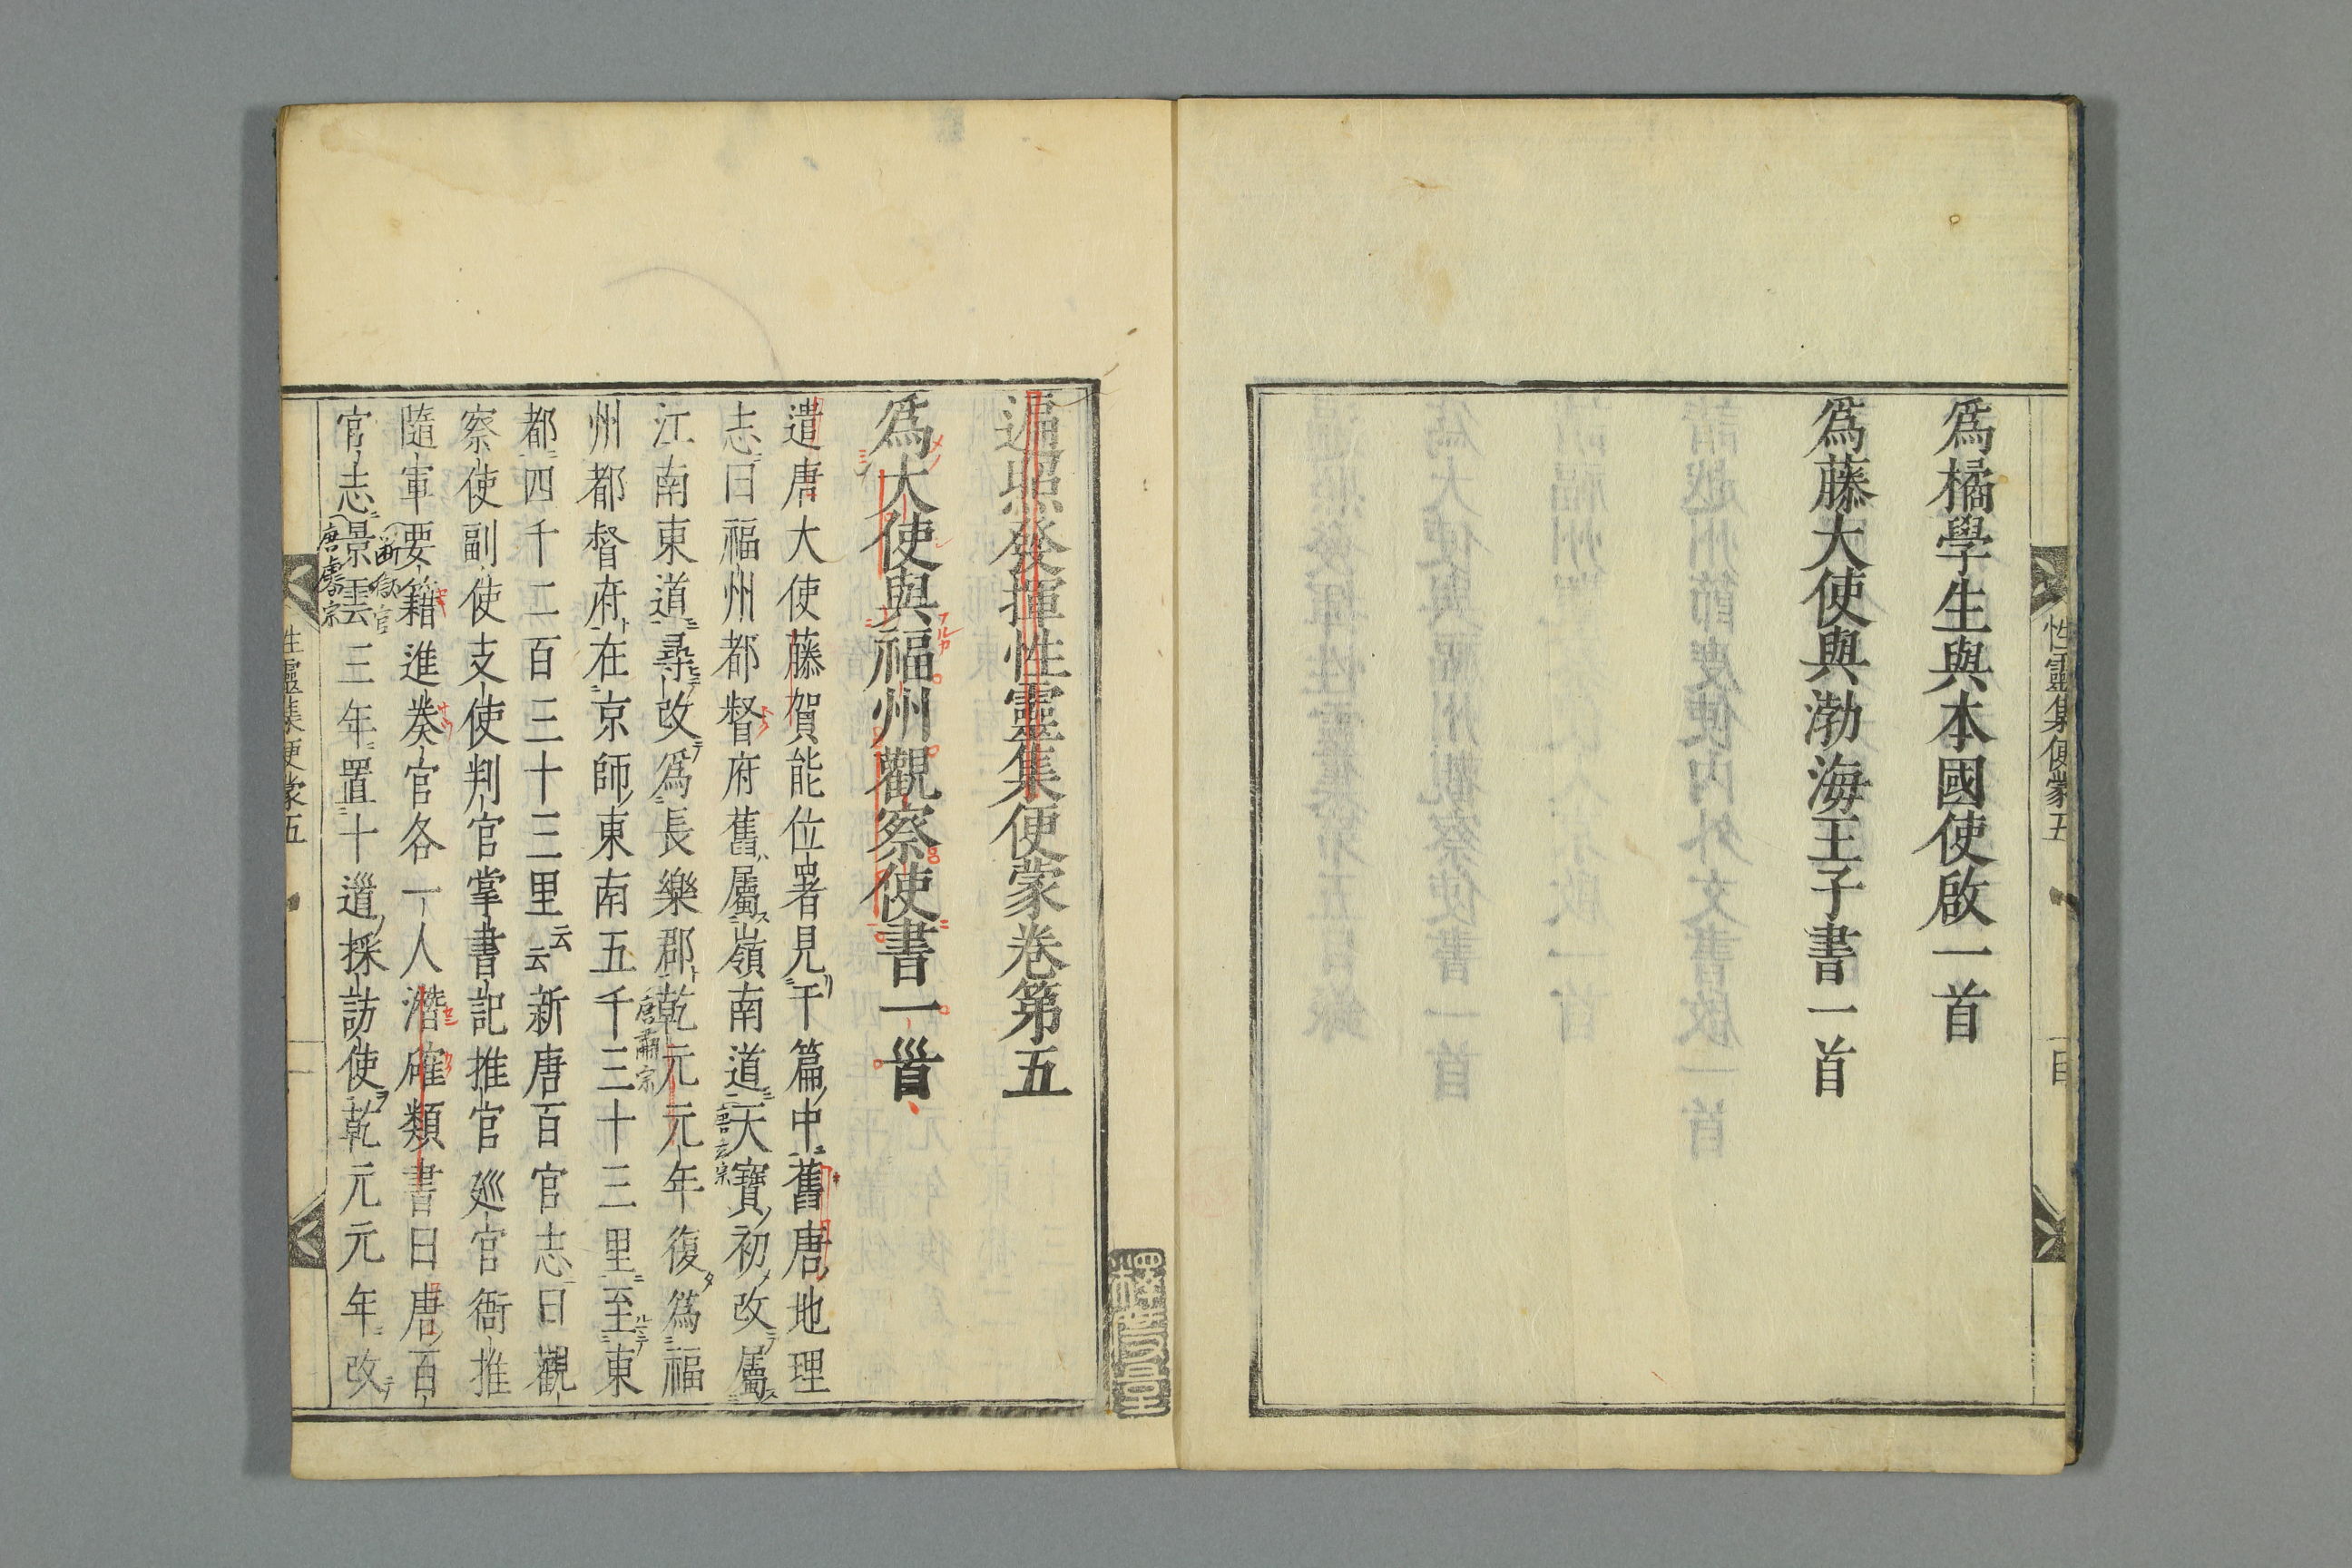 爲橘學生與本國使啟一首
爲藤大使與渤海王子書一首
性靈集便蒙五
遍照發揮性靈集便蒙卷第五
爲大使與福州觀察使書一首
遣唐大使藤賀能位署見于篇中舊唐地理
志曰福州都督府舊屬嶺南道天寶初改屬
唐玄宗
江南東道尋改爲長樂郡乾元元年復爲福
唐肅宗
州都督府在京師東南五千三十三里至東
都四千二百三十三里云云新唐百官志曰觀
察使副使支使判官掌書記推官巡官衙推
隨軍要籍進奏官各一人潛確類書曰唐百
斷獄官
官志景雲三年置十道採訪使乾元元年改
唐睿宗
性靈集便蒙五
一